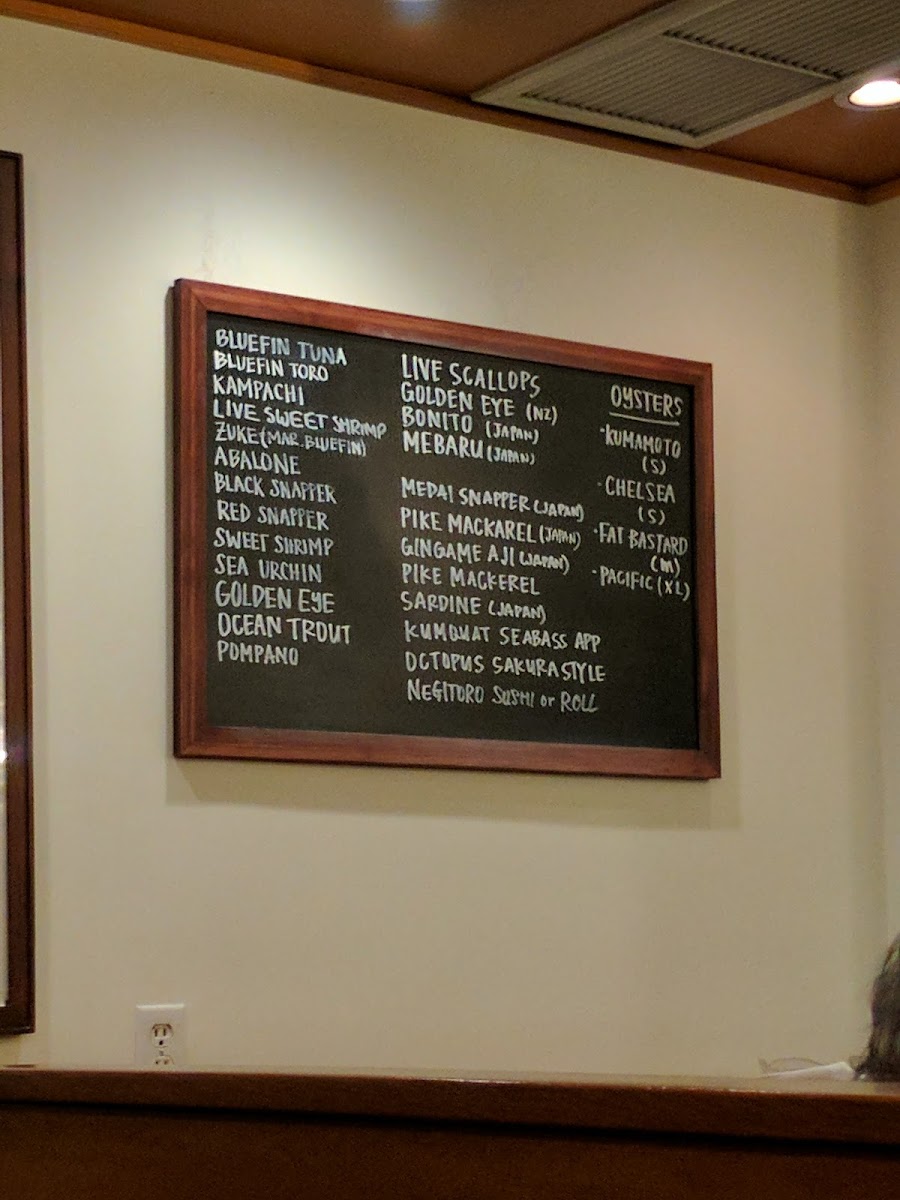 BLUEFIN TUNA
BLUEFIN TORO
KAMPACHI
LIVE SWEET SHRIMP
ZUKE (MAR. BLUEFIN)
ABALONE
BLACK SNAPPER
RED SNAPPER
SWEET SHRIMP
SEA URCHIN
GOLDEN EYE
OCEAN TROUT
POMPANO
LIVE SCALLOPS
GOLDEN EYE (NZ)
BONITO (JAPAN)
MEBARU (JAPAN)
MEDAI SNAPPER (JAPAN)
PIKE MACKAREL (JAPAN)
GINGAME AJI (JAPAN)
PIKE MACKEREL
SARDINE (JAPAN)
KUMQUAT SEABASS APP
OCTOPUS SAKURA STYLE
NEGITORO SUSHI or ROLL
OYSTERS
·KUMAMOTO
(S)
·CHELSEA
(S)
·FAT BASTARD
(M)
·PACIFIC (XL)